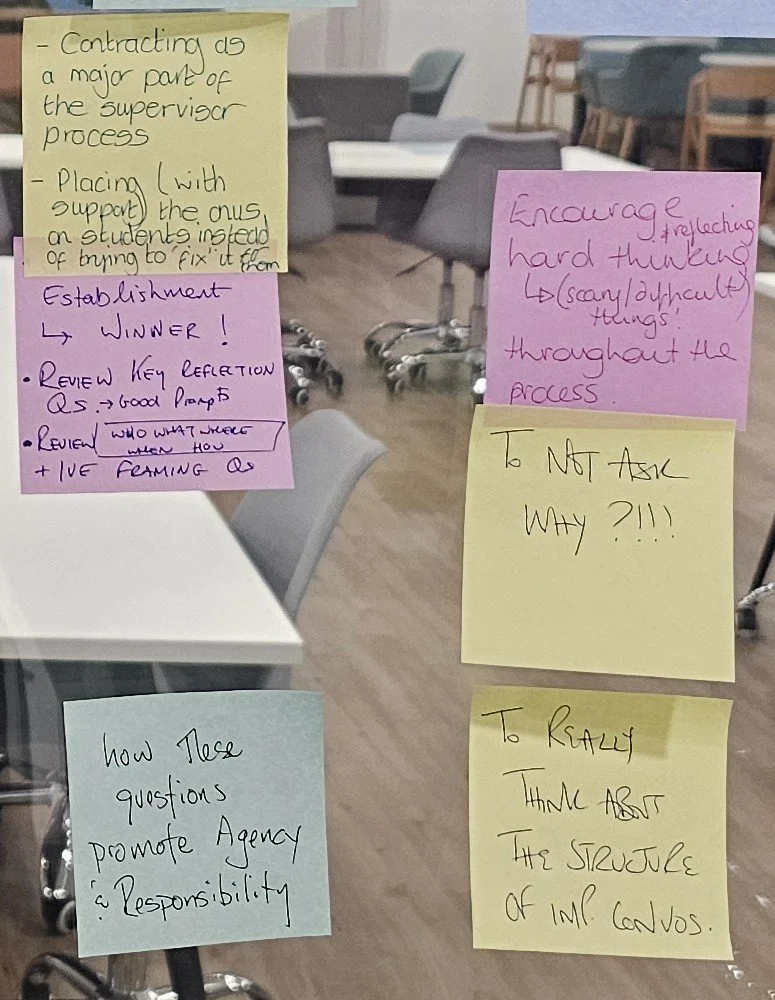 - Contracting as
a major part of
the supervisor
process
- Placing (with
support) the onus
on students instead
of trying to 'fix' it for
them
Establishment
↳ WINNER !
• REVIEW KEY REFLECTION
QS. → Good Prompts
• REVIEW WHO WHAT WHERE
WHEN HOW
+ IVE FRAMING QS
how these
questions
promote Agency
& Responsibility
Encourage
& reflecting
hard thinking
↳ (scary/difficult)
things!
throughout the
process.
TO NOT ASK
WHY ?!!!
TO REALLY
THINK ABOUT
THE STRUCTURE
OF IMP. CONVOS.